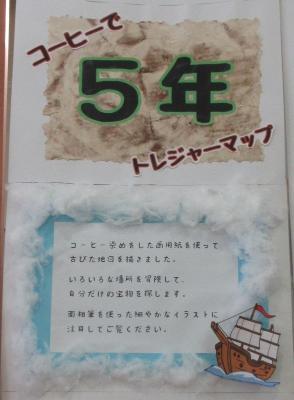 コーヒーで
5年
トレジャーマップ
コーヒー染めをした画用紙を使って
古びた地図を描きました。
いろいろな場所を冒険して、
自分だけの宝物を探します。
面相筆を使った細やかなイラストに
注目してご覧ください。